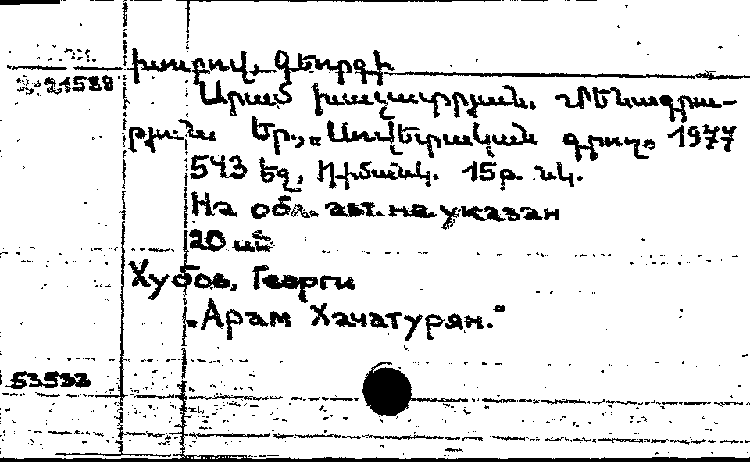 Խուբով, Գեորգի
2-21588
Արամ Խաչատրյան. Մենագրու-
թյուն. Եր., „Սովետական գրող„ 1977
543 էջ, Դիմանկ. 15թ. նկ.
На обл. авт. не указан
20 սմ
Хубов, Георги
„Арам Хачатурян."
53532